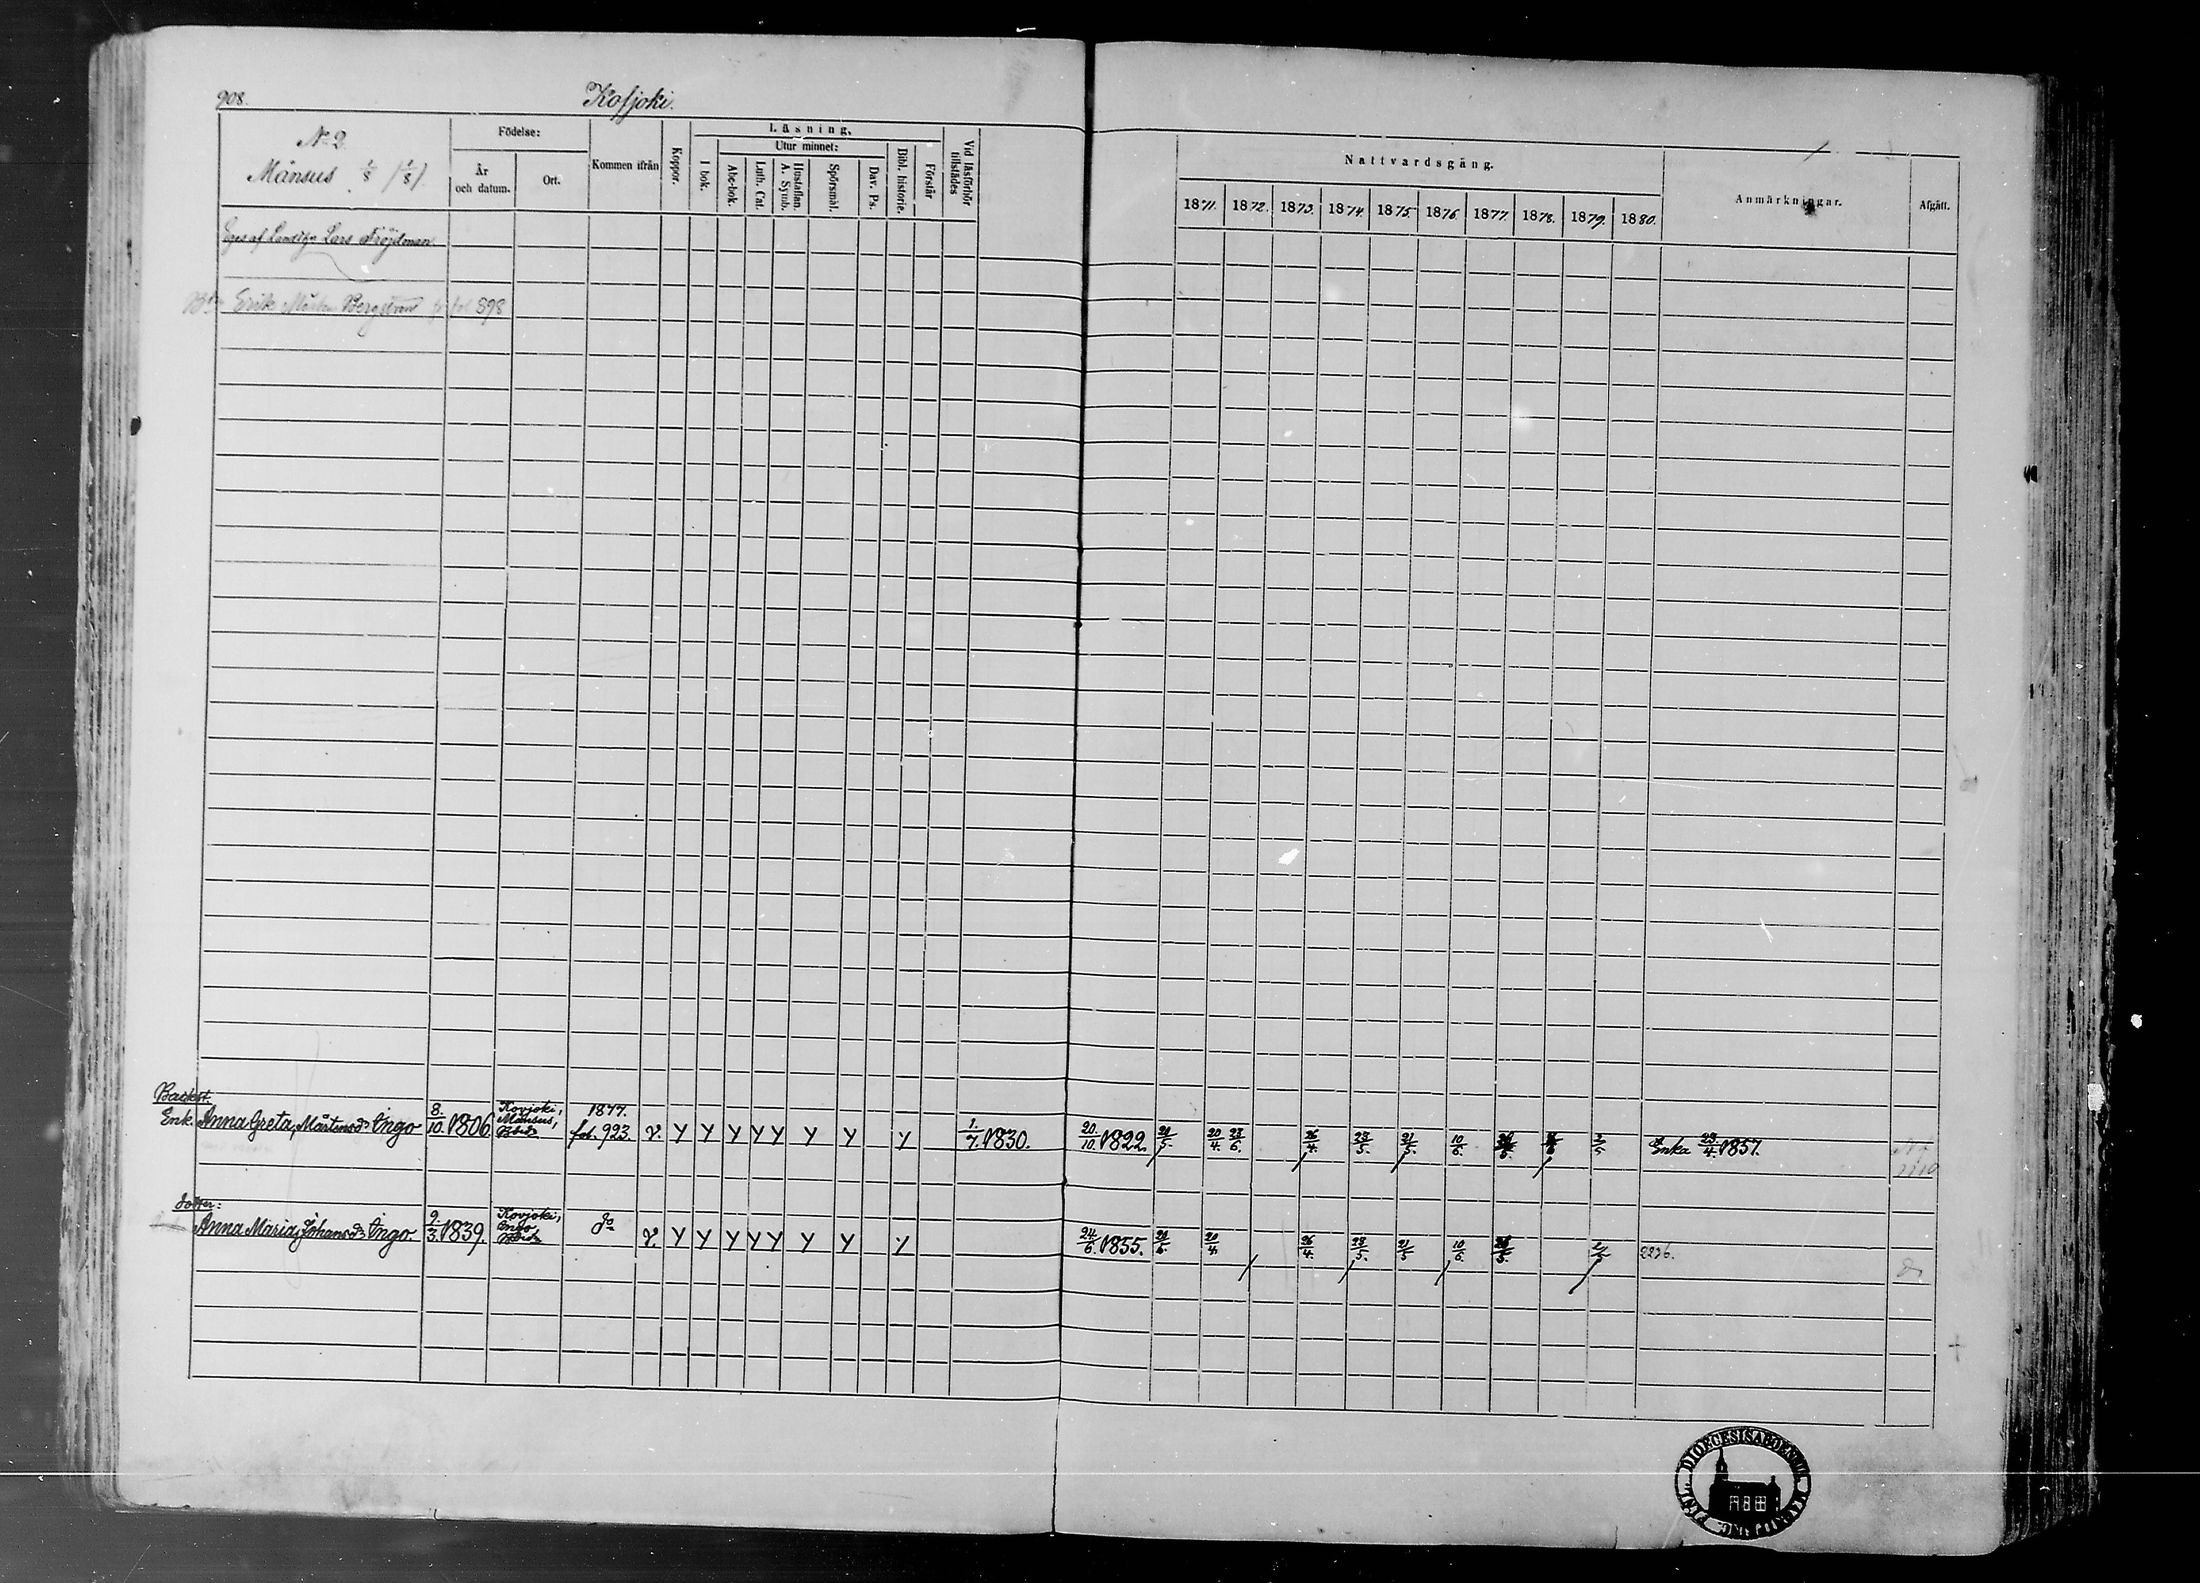 908.
Kofjoki.
No 2.
Månsus 1/8 (1/8).
Födelse:
År och datum.
Ort.
Kommen ifrån
Koppor.
Läsning.
I bok.
Utur minnet:
Abc-bok.
Luth. Cat.
Hustaflan. A. Symb.
Spörsmål.
Dav. Ps.
Bibl. historie.
Förstår
Vid läsförhör tillstädes
Nattvardsgång.
1871. 1872. 1873. 1874. 1875 1876 1877. 1878. 1879. 1880.
Anmärkningar.
Afgått.
Lars Fröjdman.
Erik Bergström fol 898
Backst.
Enk. Anna Greta, Mårtensdr Ingo 8/10. 1806. Kovjoki, Månsus, 1877. fol. 923. v. Y Y Y Y Y Y Y Y 1/7. 1830. 20/10. 1822. 20/4. 26/4. 23/5. 21/5. 10/6. Enka 23/4. 1857.
dotter:
Anna Maria Johansdr Ingo 9/3. 1839. Kovjoki, Ingo do v. Y Y Y Y Y Y Y Y 24/6. 1855. 20/4 26/4. 23/5. 21/5 10/6. 2236.